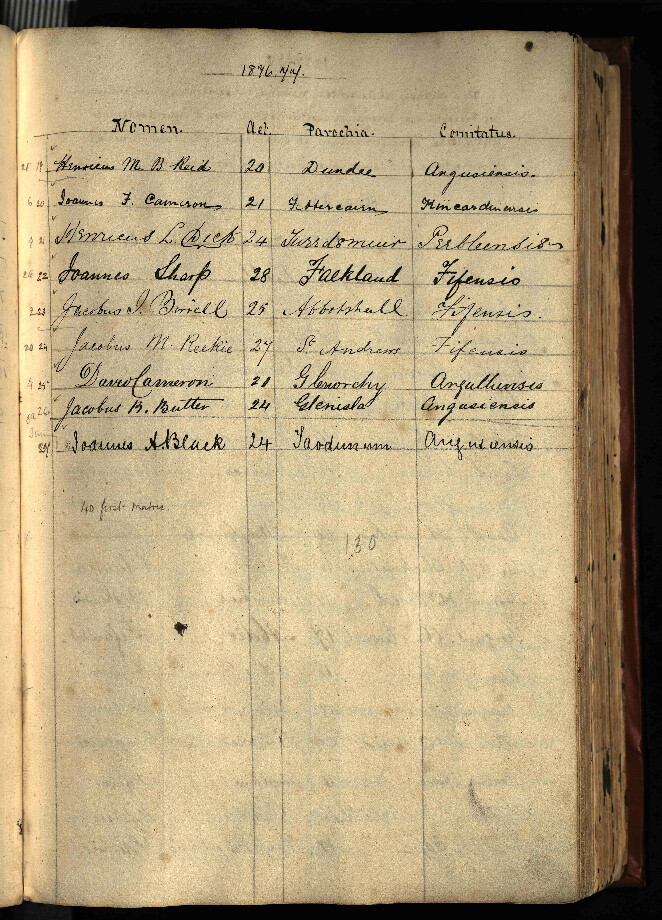 1896.97.
Nomen. Aet. Parochia. Comitatus.
19 Henricus M. B. Reid 20 Dundee Angusiensis.
20 Ioannes F. Cameron 21 Fettercairn Kincardinensis
21 Henricus L. Dick 24 Perthensis
22 Ioannes Sharp 28 Falkland Fifensis
23 Jacobus J. Birrell 25 Abbotshall Fifensis.
24 Jacobus M. Reekie 27 St Andrews Fifensis
25 David Cameron 21 Glenorchy
26 Jacobus R. Butter 24 Glenisla Angusiensis
27 Ioannes A. Black 24 Taodunum Angusiensis
40 first matric.
130